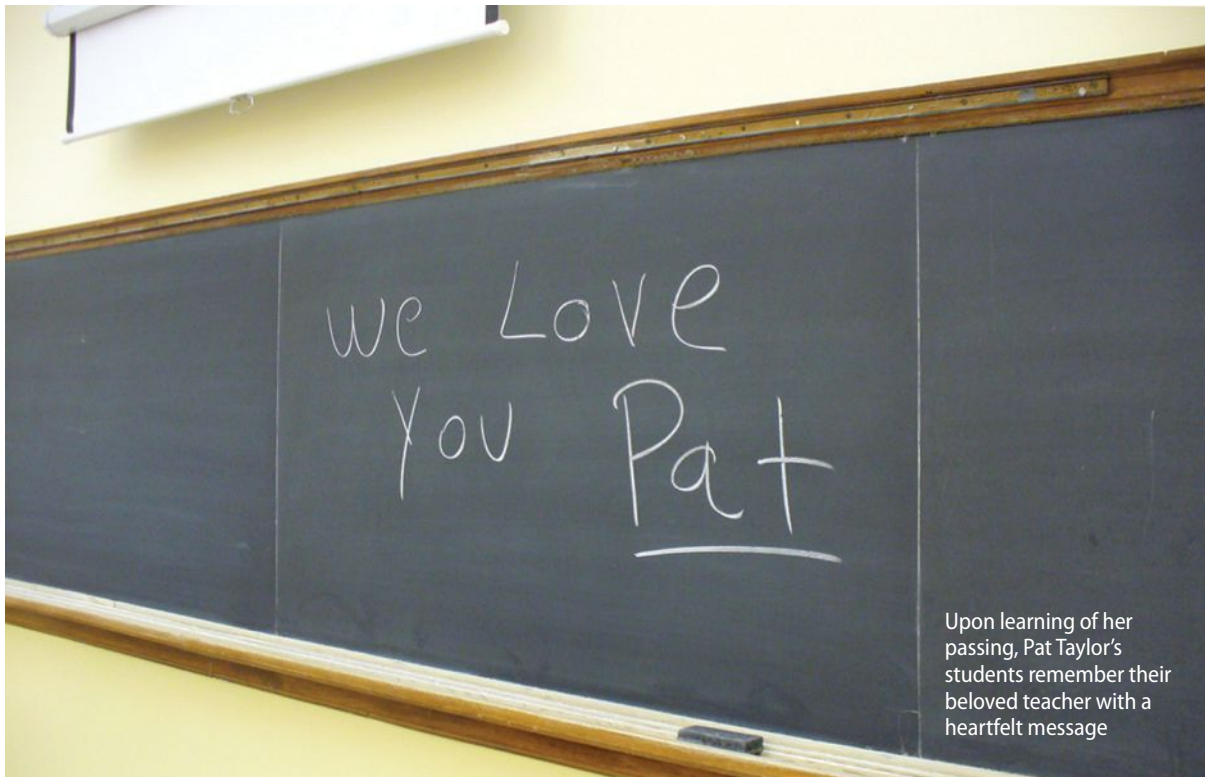 We Love
You Pat
Upon learning of her
passing, Pat Taylor's
students remember their
beloved teacher with a
heartfelt message